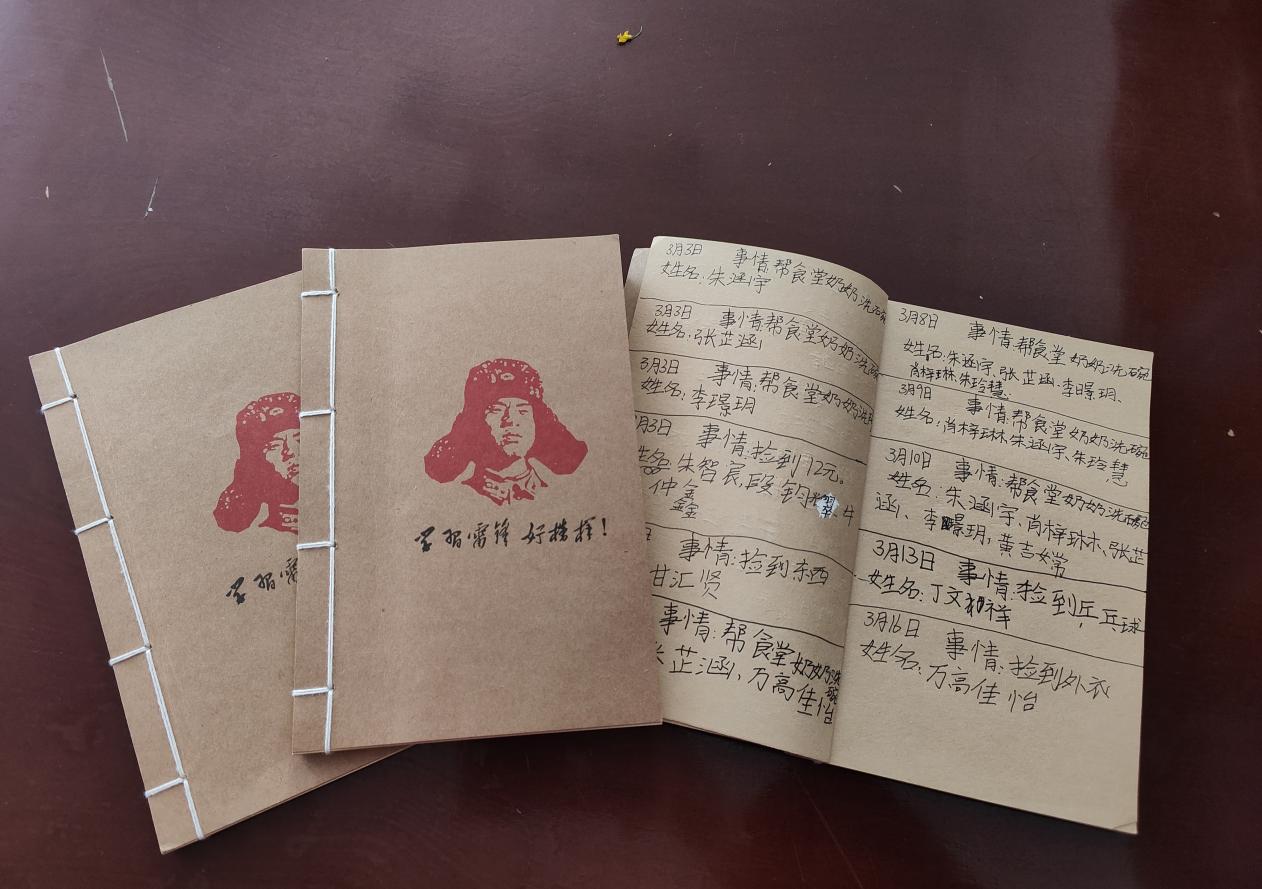 学习雷锋
学习雷锋 好榜样！
3月3日 事情：帮食堂奶奶洗碗
姓名：朱涵宇
3月3日 事情：帮食堂奶奶洗碗
姓名：张芷涵
3月3日 事情：帮食堂奶奶洗
姓名：李璟玥
月3日 事情：捡到12元。
姓名 朱智宸，段钧
仲鑫
鑫
事情：捡到东西
甘汇贤
事情：帮食堂奶奶洗碗
张芷涵、万高佳怡
3月8日 事情：帮食堂奶奶洗碗
姓名：朱涵宇、张芷涵、李暻玥、
肖梓琳、朱玲慧
3月9日 事情：帮食堂奶奶洗碗
姓名：肖梓琳、朱涵宇、朱玲慧
3月10日 事情：帮食堂奶奶洗碗
姓名：朱涵宇、肖梓琳、张芷
涵、李暻玥，黄吉嫦
3月13日 事情：捡到乒乓球
姓名：丁文祥
3月16日 事情：捡到外衣
姓名：万高佳怡